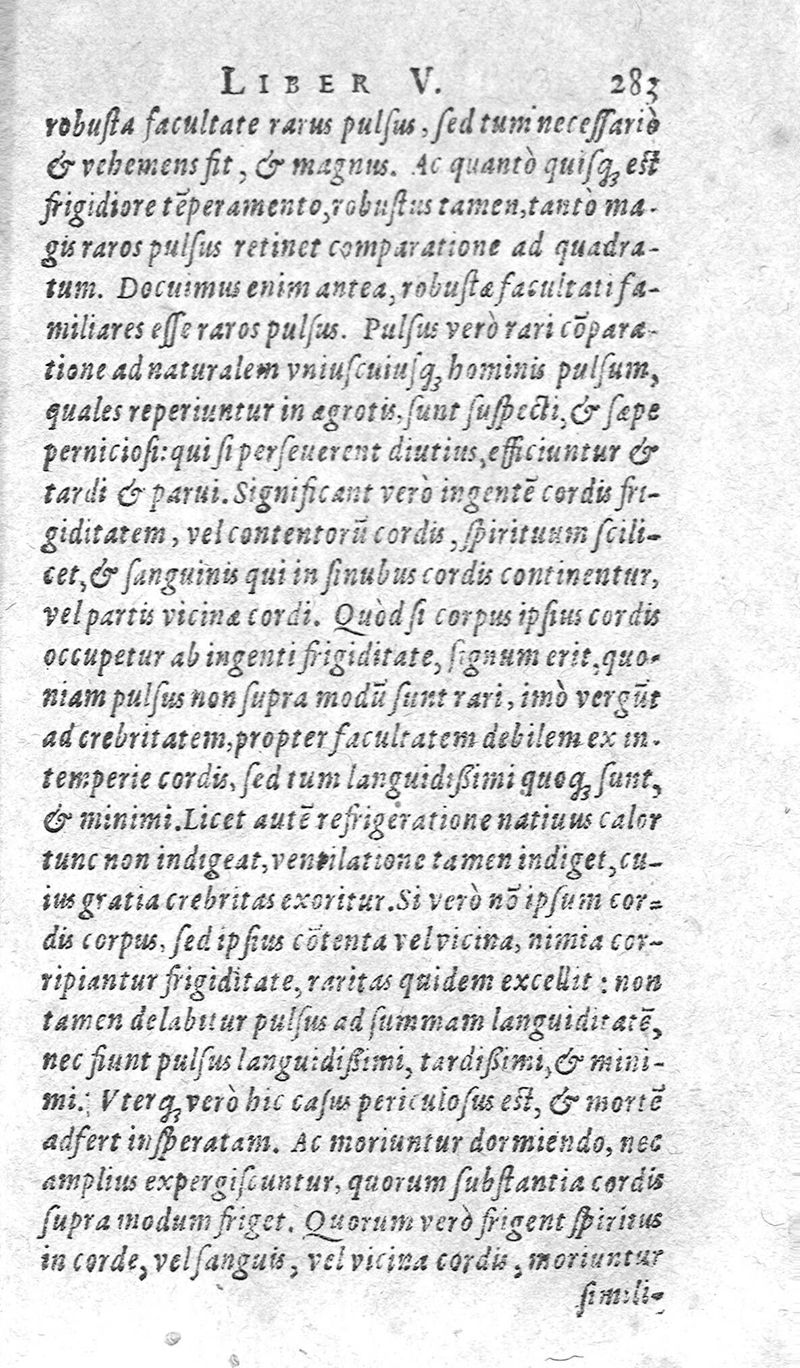 LIBER V. 283
robuſta facultate rarus pulſus, ſed tum neceſſariò
& vehemens fit, & magnus. Ac quantò quiſq; eſt
frigidiore tēperamento, robuſtus tamen, tantò ma-
gis raros pulſus retinet comparatione ad quadra-
tum. Docuimus enim antea, robuſtæ facultati fa-
miliares eſſe raros pulſus. Pulſus verò rari cōpara-
tione ad naturalem vniuſcuiuſq; hominis pulſum,
quales reperiuntur in ægrotis, ſunt ſuſpecti, & ſæpe
pernicioſi: qui ſi perſeuerent diutius, efficiuntur &
tardi & parui. Significant verò ingentē cordis fri-
giditatem, vel contentorū cordis, ſpirituum ſcili-
cet, & ſanguinis qui in ſinubus cordis continentur,
vel partis vicinæ cordi. Quòd ſi corpus ipſius cordis
occupetur ab ingenti frigiditate, ſignum erit, quo-
niam pulſus non ſupra modū ſunt rari, imò vergūt
ad crebritatem, propter facultatem debilem ex in-
temperie cordis, ſed tum languidißimi quoq; ſunt,
& minimi. Licet autē refrigeratione natiuus calor
tunc non indigeat, ventilatione tamen indiget, cu-
ius gratia crebritas exoritur. Si verò nō ipſum cor-
dis corpus, ſed ipſius cōtenta vel vicina, nimia cor-
ripiantur frigiditate, raritas quidem excellit: non
tamen delabitur pulſus ad ſummam languiditatē,
nec fiunt pulſus languidißimi, tardißimi, & mini-
mi. Vterq; verò hic caſus periculoſus eſt, & mortē
adfert inſperatam. Ac moriuntur dormiendo, nec
amplius expergiſcuntur, quorum ſubſtantia cordis
ſupra modum friget. Quorum verò frigent ſpiritus
in corde, vel ſanguis, vel vicina cordis, moriuntur
ſimili-